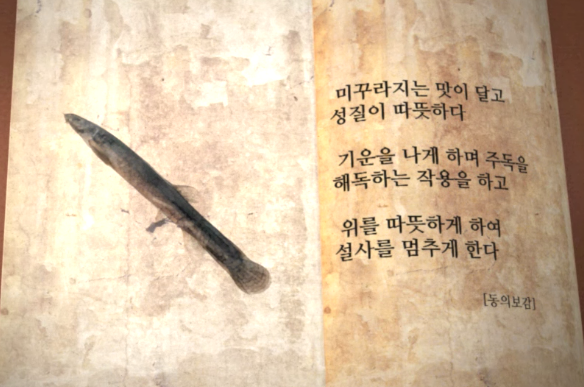 미꾸라지는 맛이 달고
성질이 따뜻하다
기운을 나게 하며 주독을
해독하는 작용을 하고
위를 따뜻하게 하여
설사를 멈추게 한다
[동의보감]